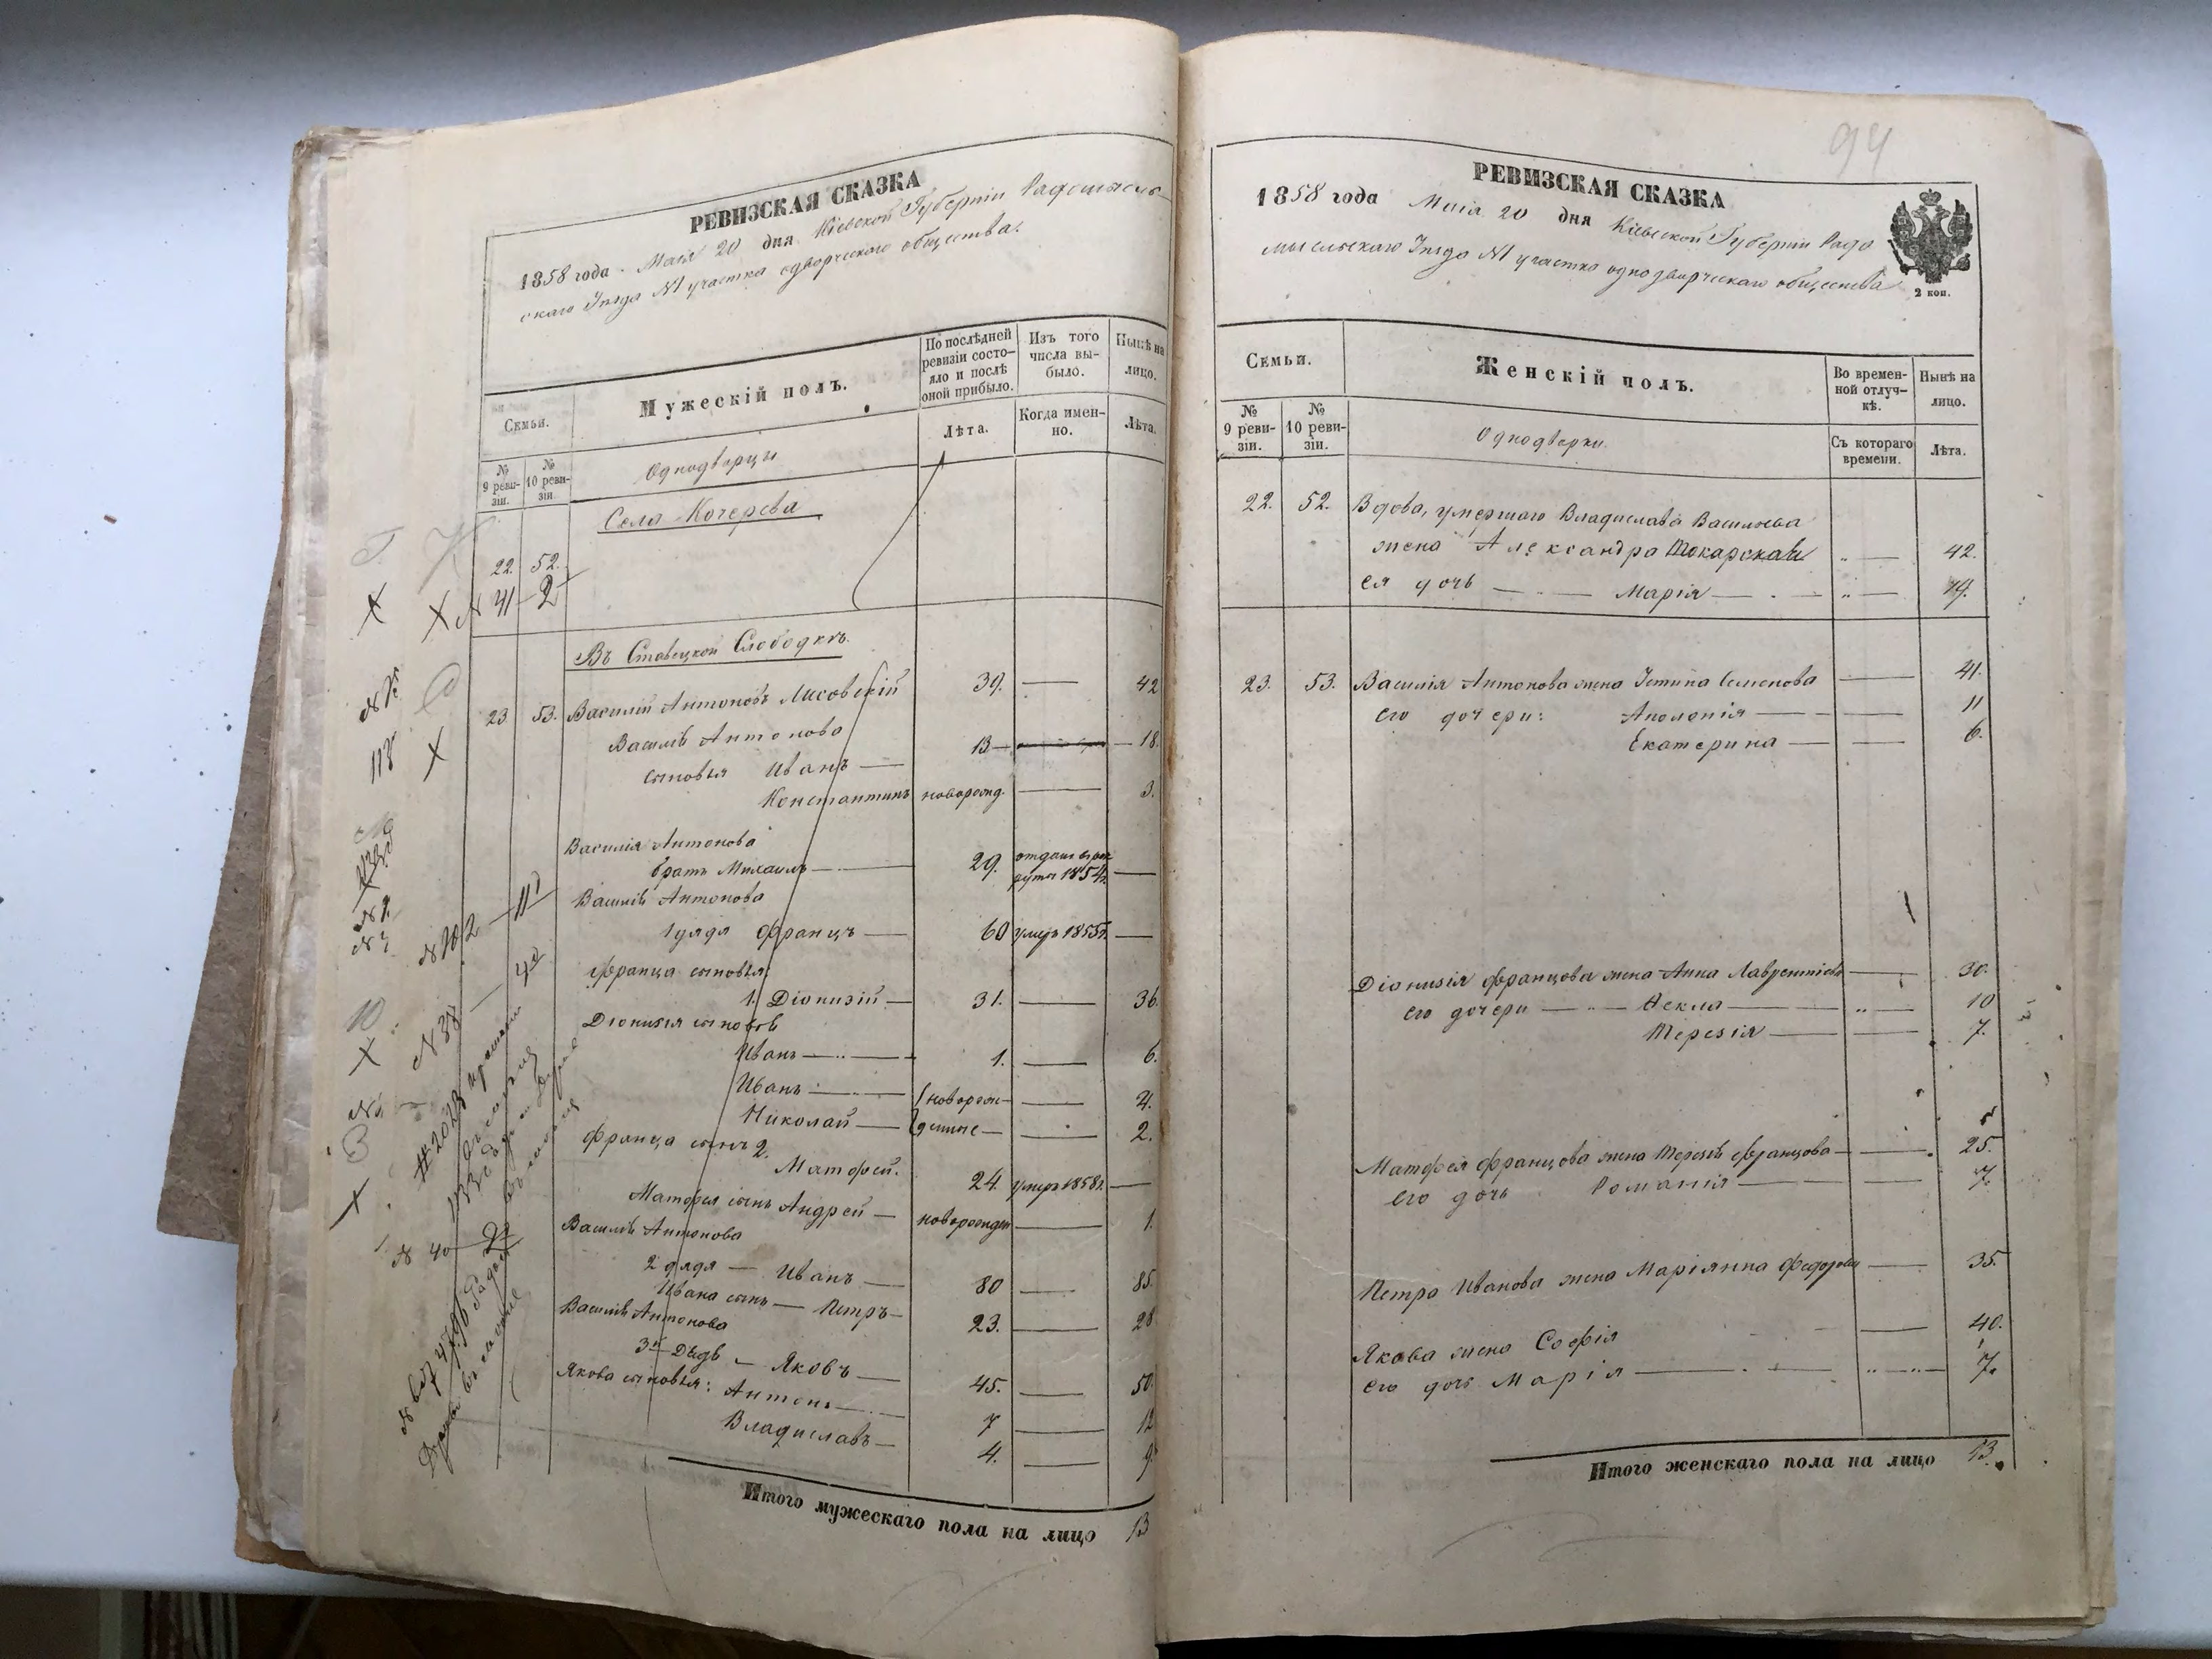 РЕВИЗСКАЯ СКАЗКА
1858 года Маія 20 дня Кіевской Губерніи Радомысль-
скаго Уѣзда №1 участка одворческаго общества.
Семьи.
Мужескій полъ.
По послѣдней ревизіи состо-яло и послѣ оной прибыло.
Изъ того числа вы-было.
Нынѣ на лицо.
№ 9 реви-зіи.
№ 10 реви-зіи.
Однодворцы
Лѣта.
Когда имен-но.
Лѣта.
Села Кочерева
22. 52.
№ 41 — 2
Въ Ставецкой Слободкѣ.
23 53. Василій Антоновъ Лисовскій 39. — 42
Василія Антонова
сыновья Иванъ — 13 — 18.
Константинъ новорожд. — 3.
Василія Антонова
братъ Михаилъ — 29. отданъ въ рек руты 1854 г. —
Василія Антонова
1 дядя Францъ — 60 умеръ 1855 г. —
Франца сыновья:
1. Діонизій — 31. — 36.
Діонизія сыновья
Иванъ — 1. — 6.
Иванъ — новорож — 4.
Николай — денные — 2.
Франца сынъ 2.
Матфей. 24. умеръ 1858 г. —
Матфея сынъ Андрей — новорожден — 1.
Василія Антонова
2 дядя — Иванъ — 80 — 85.
Ивана сынъ — Петръ — 23. — 28
Василія Антонова
3й Дядя — Яковъ — 45. — 50.
Якова сыновья: Антонъ — 7 — 12
Владиславъ — 4. — 9.
Итого мужескаго пола на лицо 13
94
РЕВИЗСКАЯ СКАЗКА
1858 года Маія 20 дня Кіевской Губерніи Радо
мысльскаго Уѣзда №1 участка однодворческаго общества
2 коп.
Семьи.
Женскій полъ.
Во времен-ной отлуч-кѣ.
Нынѣ на лицо.
№ 9 реви-зіи.
№ 10 реви-зіи.
Однодворки.
Съ котораго времени.
Лѣта.
22. 52. Вдова, умершаго Владислава Васильева
жена Александра Токарская — 42.
ея дочь — Марія — 19.
23. 53. Василія Антонова жена Устина Семенова — 41.
его дочери: Аполонія — 11
Екатерина — 6.
Діонизія Францова жена Анна Лаврентіева — 30.
его дочери — Фекла — 10
Терезія — 7.
Матфея Францова жена Терезія Францова — 25.
его дочь Романія — 7.
Петра Иванова жена Маріянна Федорова — 35.
Якова жена Софія — 40.
его дочь Марія — 7.
Итого женскаго пола на лицо 13.